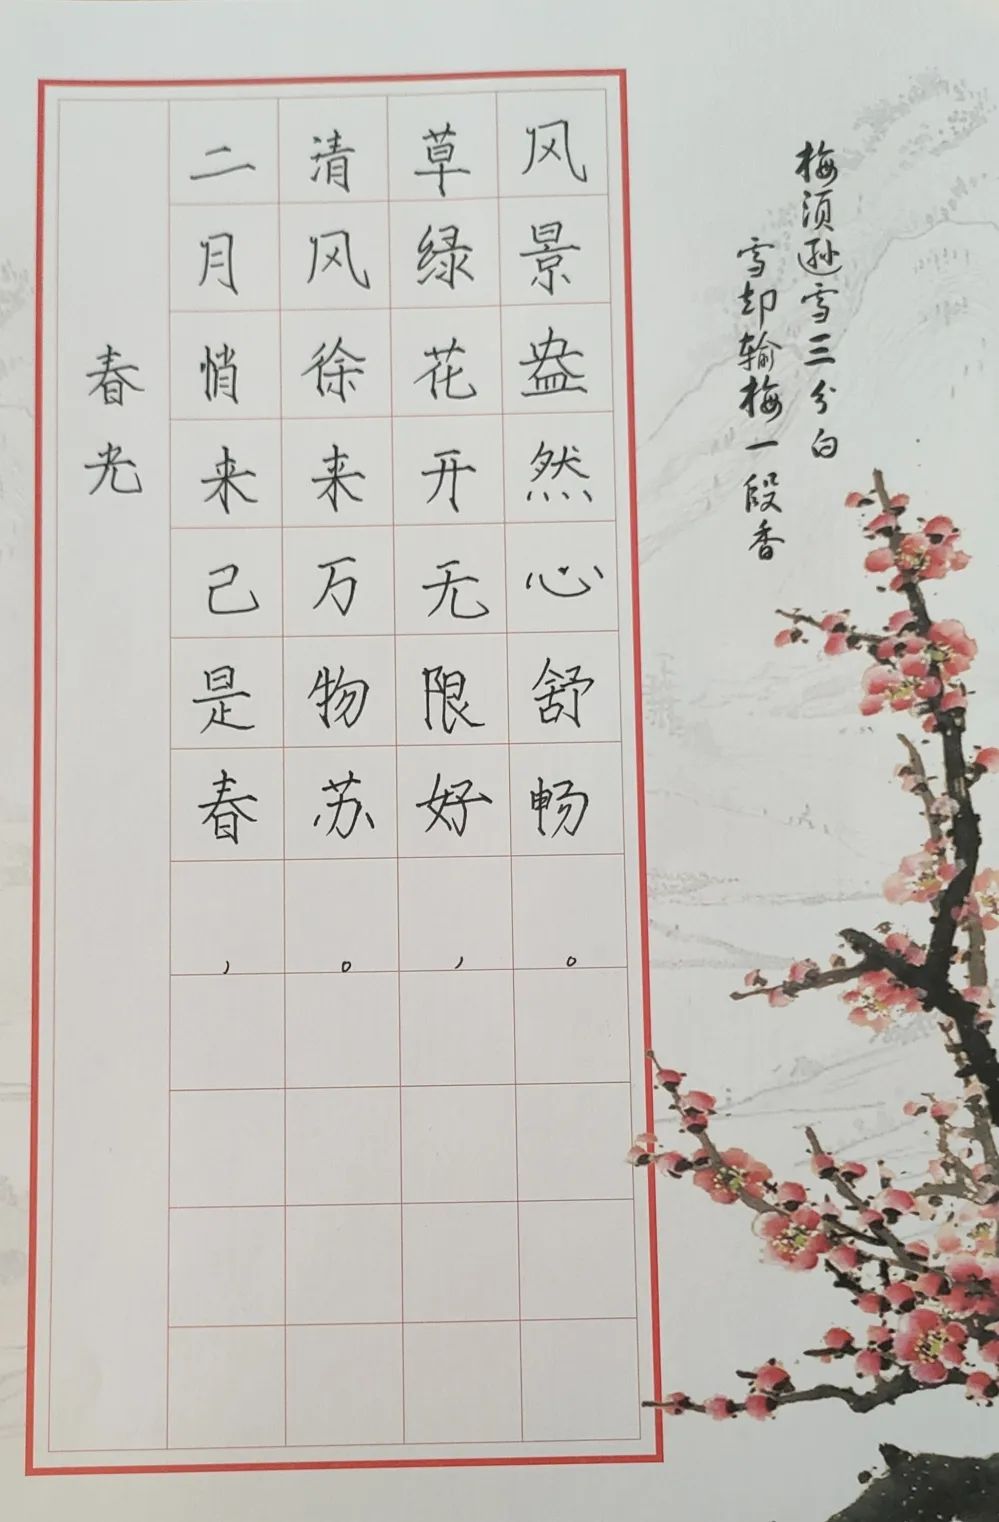 春光
二月悄来己是春，
清风徐来万物苏。
草绿花开无限好，
风景盎然心舒畅。
梅须逊雪三分白
雪却输梅一段香